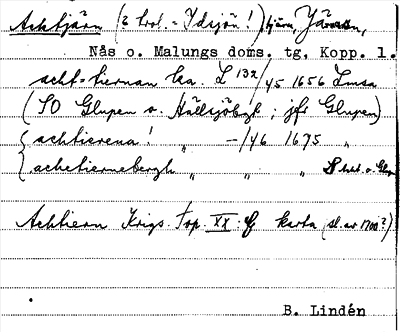 Acktjärn (? trol. = Idsjön!) tjärn, Järna,
Nås o. Malungs doms. tg, Kopp. l.
acht-tiernan ha. L 132/45 1656 Lmsa
(SO Glupen o. Hällsjöbgt; jfr Glupen)
achtierena! " -/46 1675 "
achetiernebergh " " "
Achtiern Krigs. Top. XX: karta (sl. av 1700?)
B. Lindén